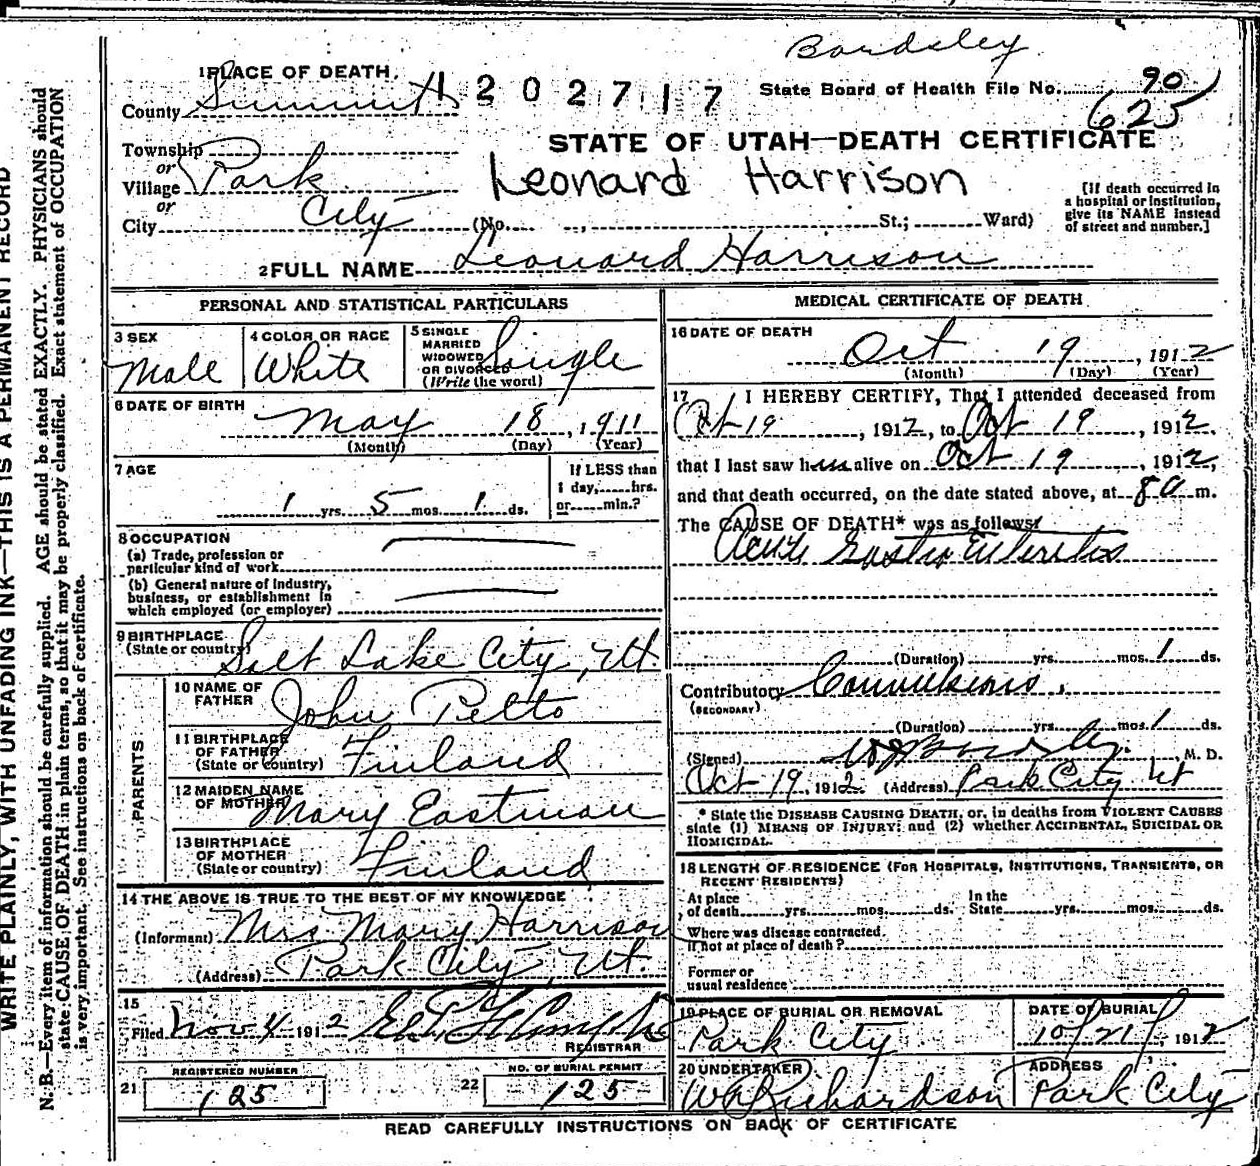 Bardsley
1 PLACE OF DEATH.
County Summit
1202717
State Board of Health File No. 90
625
STATE OF UTAH—DEATH CERTIFICATE
Township
or
Village Park
or
City City
Leonard Harrison
(No. St.; Ward)
[If death occurred in
a hospital or institution,
give its NAME instead
of street and number.]
2 FULL NAME Leonard Harrison
PERSONAL AND STATISTICAL PARTICULARS
3 SEX
Male
4 COLOR OR RACE
White
5 SINGLE
MARRIED
WIDOWED
OR DIVORCED
(Write the word)
Single
6 DATE OF BIRTH
May 18, 1911
(Month) (Day) (Year)
7 AGE
1 yrs. 5 mos. 1 ds.
If LESS than
1 day, hrs.
or min.?
8 OCCUPATION
(a) Trade, profession or
particular kind of work
(b) General nature of industry,
business, or establishment in
which employed (or employer)
9 BIRTHPLACE
(State or country)
Salt Lake City, Ut.
PARENTS
10 NAME OF
FATHER
John Pelto
11 BIRTHPLACE
OF FATHER
(State or country)
Finland
12 MAIDEN NAME
OF MOTHER
Mary Eastman
13 BIRTHPLACE
OF MOTHER
(State or country)
Finland
14 THE ABOVE IS TRUE TO THE BEST OF MY KNOWLEDGE
(Informant) Mrs Mary Harrison
(Address) Park City, Ut.
15
Filed Nov 4 1912
REGISTRAR
REGISTERED NUMBER
21 125
NO. OF BURIAL PERMIT
22 125
MEDICAL CERTIFICATE OF DEATH
16 DATE OF DEATH
Oct 19, 1912
(Month) (Day) (Year)
17 I HEREBY CERTIFY, That I attended deceased from
Oct 19, 1912, to Oct 19, 1912,
that I last saw him alive on Oct 19, 1912,
and that death occurred, on the date stated above, at 8 a m.
The CAUSE OF DEATH* was as follows:
Acute Gastro Enteritis
(Duration) yrs. mos. 1 ds.
Contributory Convulsions.
(SECONDARY)
(Duration) yrs. mos. 1 ds.
(Signed) Bardsley. M. D.
Oct 19, 1912. (Address) Park City Ut
* State the DISEASE CAUSING DEATH, or, in deaths from VIOLENT CAUSES
state (1) MEANS OF INJURY; and (2) whether ACCIDENTAL, SUICIDAL OR
HOMICIDAL.
18 LENGTH OF RESIDENCE (FOR HOSPITALS, INSTITUTIONS, TRANSIENTS, OR
RECENT RESIDENTS)
At place
of death yrs. mos. ds.
In the
State yrs. mos. ds.
Where was disease contracted,
if not at place of death?
Former or
usual residence
19 PLACE OF BURIAL OR REMOVAL
Park City
DATE OF BURIAL
10/21/, 1912
20 UNDERTAKER
W Richardson
ADDRESS
Park City
READ CAREFULLY INSTRUCTIONS ON BACK OF CERTIFICATE
WRITE PLAINLY, WITH UNFADING INK—THIS IS A PERMANENT RECORD
N. B.—Every item of information should be carefully supplied. AGE should be stated EXACTLY. PHYSICIANS should
state CAUSE OF DEATH in plain terms, so that it may be properly classified. Exact statement of OCCUPATION
is very important. See instructions on back of certificate.